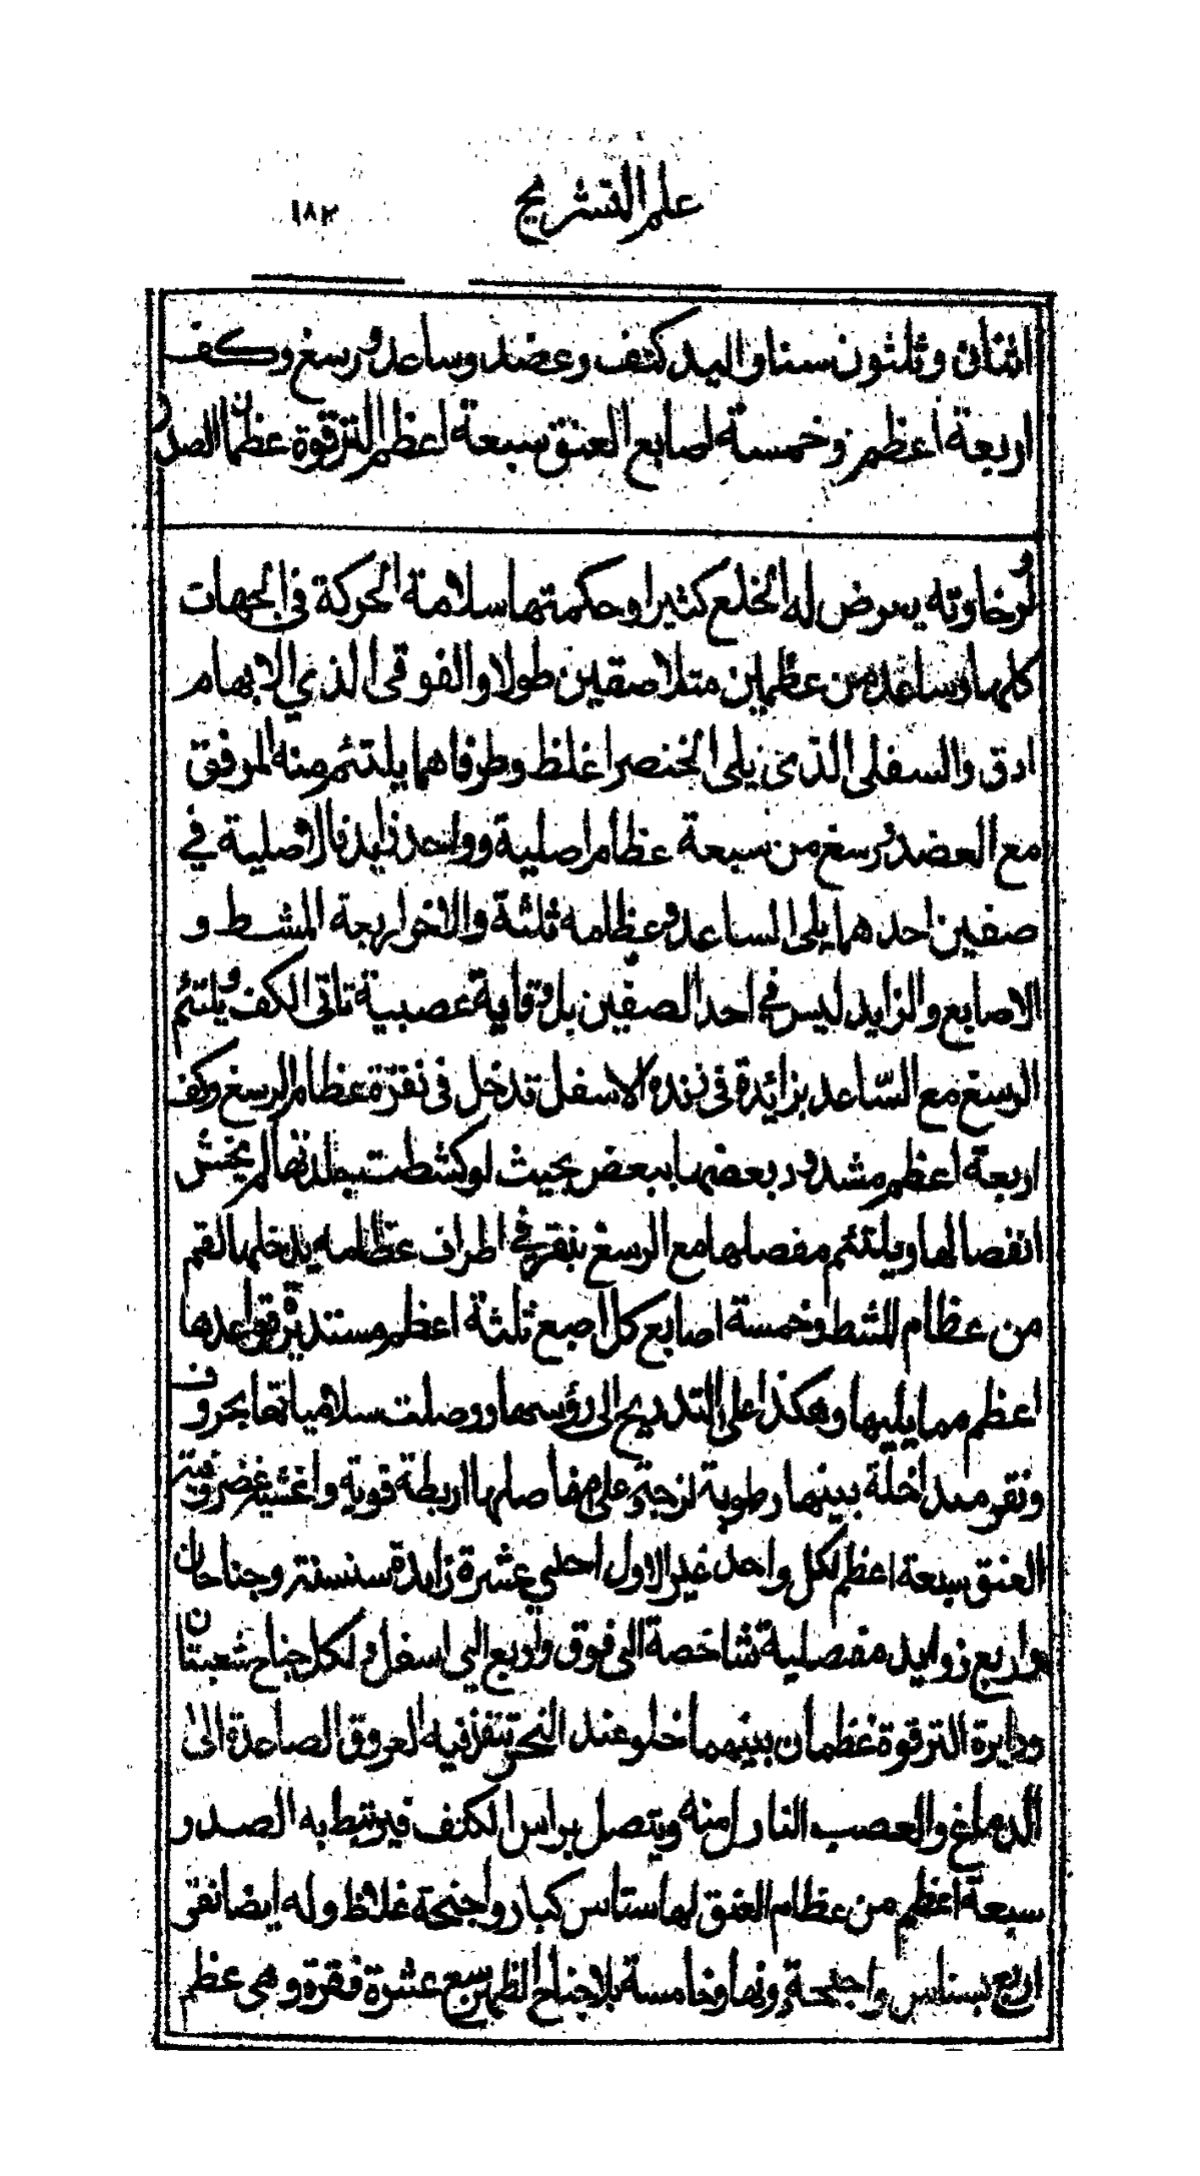 علم التشريح ١٨٢
اثنان وثلثون سنا واليد كتف وعضد وساعد ورسغ وكف
اربعة اعظم وخمسة اصابع العنق سبعة اعظم الترقوة عظمان الصدر
لرخاوته يعرض له الخلع كثيرا وحكمتها سلامة الحركة في الجهات
كلها وساعد من عظمين متلاصقين طولا والفوقي الذي يلي الابهام
ادق والسفلى الذى يلى الخنصر اغلظ وطرفاهما يلتئم منه المرفق
مع العضد ورسغ من سبعة عظام اصلية وواحد زايد فالاصلية في
صفين احدهما يلي الساعد وعظامه ثلثة والاخر اربعة المشط و
الاصابع والزايد ليس في احد الصفين بل وقاية عصبية تاتى الكف ويلتئم
الرسغ مع السّاعد بزائدة فى زنده الاسفل تدخل فى نقرة عظام الرسغ وكف
اربعة اعظم مشدود بعضها ببعض بحيث لو كشطت جلدتها لم يخش
انفصالها ويلتئم مفصلها مع الرسغ بنقر في اطراف عظامه يدخلها القم
من عظام المشط وخمسة اصابع كل اصبع ثلثة اعظم مستديرة قواعدها
اعظم مما يليها وهكذا على التدريج الى رؤسها ووصلت سلامياتها بحروف
ونقر متداخلة بينها رطوبة لزجة وعلى مفاصلها اربطة قوية واغشية غضروفية
العنق سبعة اعظم لكل واحد غير الاول احدي عشرة زايدة سنسنة وجناحان
واربع زوايد مفصلية شاخصة الى فوق واربع الي اسفل ولكل جناح شعبتان
ودايرة الترقوة عظمان بينهما خلو عند النحر تنفذ فيه العروق الصاعدة الى
الدماغ والعصب النازل منه ويتصل براس الكتف فيرتبط به الصدر
سبعة اعظم من عظام العنق لها سناسن كبار واجنحة غلاظ وله ايضا فقر
اربع بسناسن واجنحة دونها وخامسة بلا جناح الظهر سبع عشرة فقرة وهى عظم